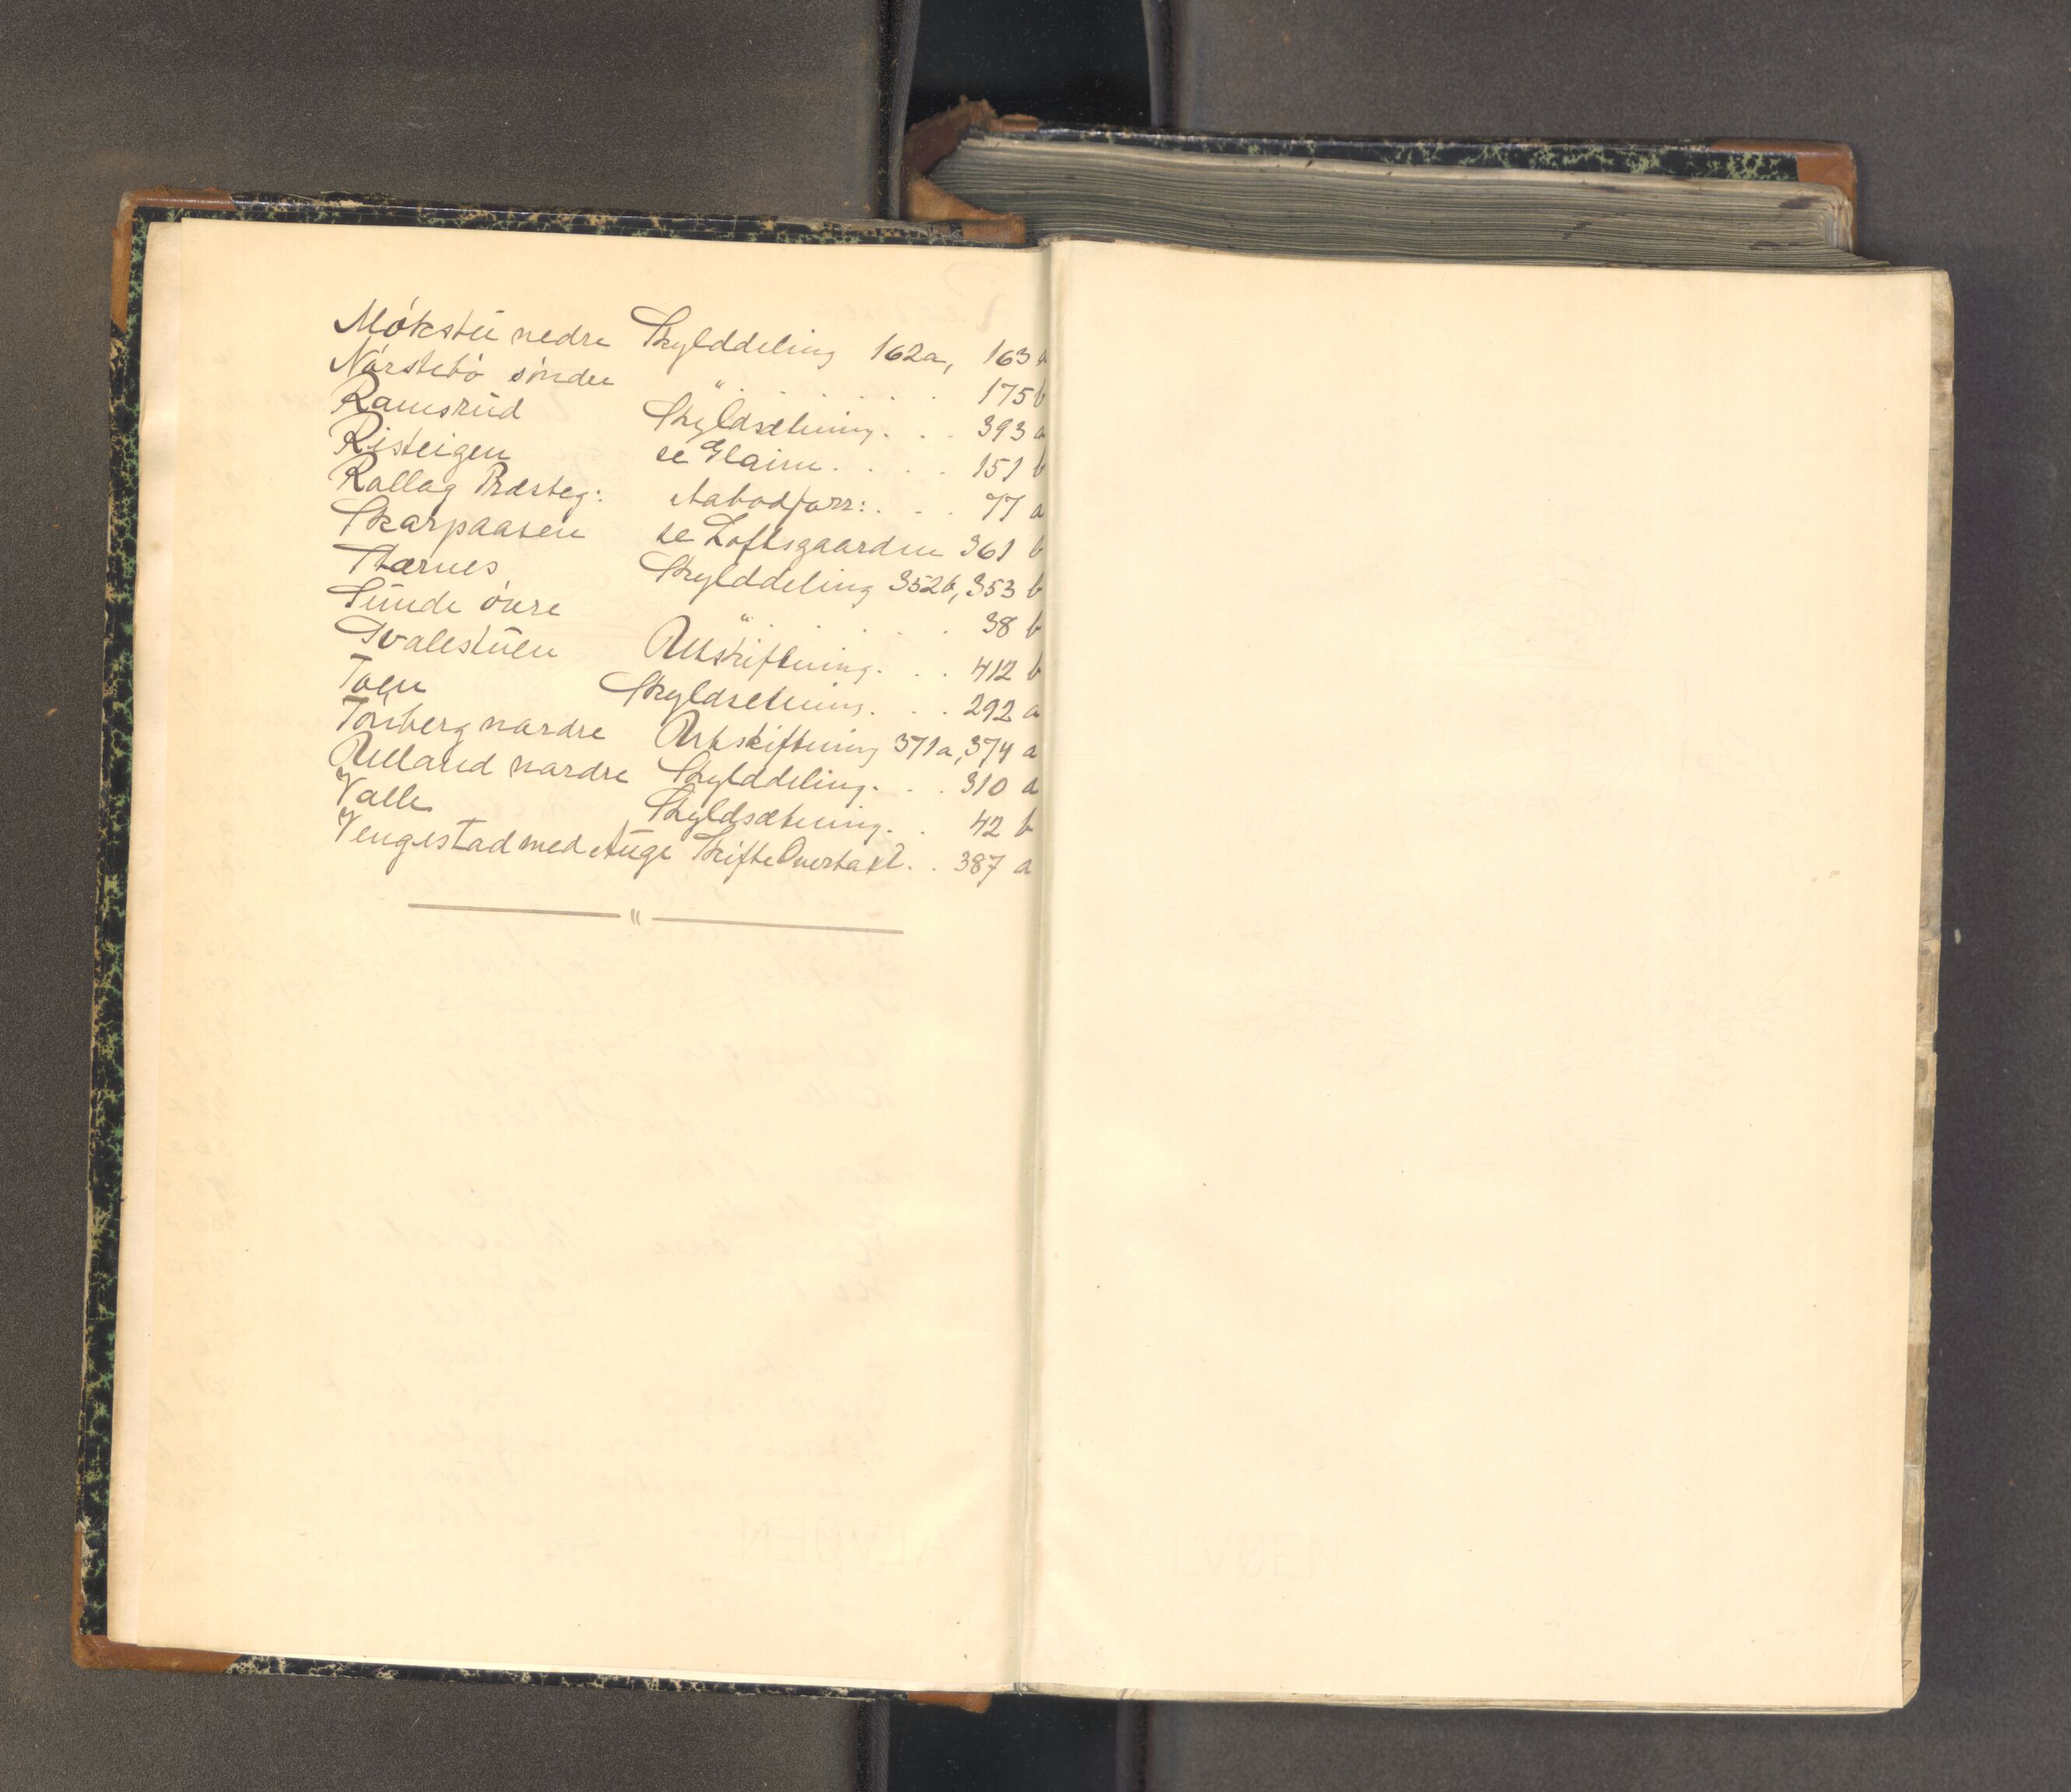 Mókstú nedre Skylddeling 162a, 163 a
Nórstebó søndre " . . . . . 175 b
Ramsrúd Skyldsætning . . . 393 a
Risteigen se Glaim . . . . 151 b
Rollag Præsteg: Aabodforr: . . . 77 a
Skarpaasen se Loftsgaarden 361 b
Stærnes Skylddeling 352b, 353 b
Súnde óvre " . . . . 38 b
Svalestúen Utskiftning . . . 412 b
Toen Skyldsetning . . . 292 a
Tónberg nordre Utskiftning 371a, 374 a
Ulland nordre Skylddeling . . . 310 a
Valle Skyldsætning . . 42 b
Vengestad med Auge Skifte Overtaxt . . 387 a